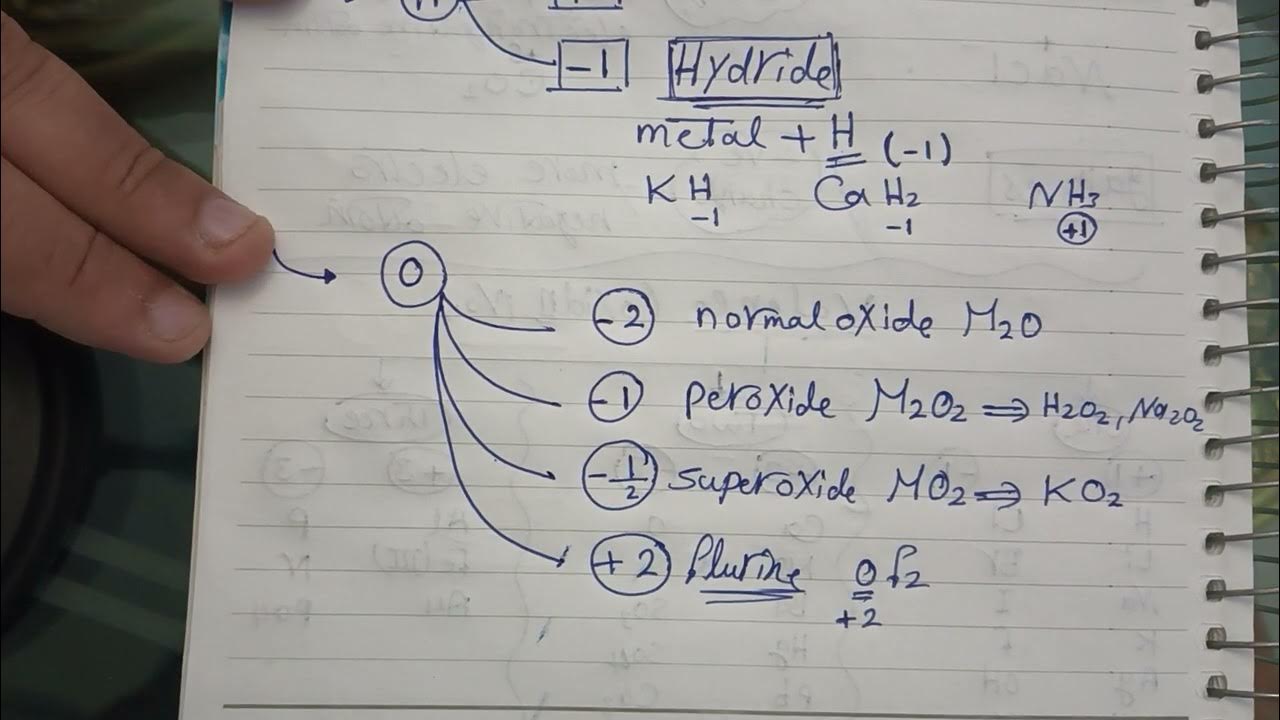 H
-1 Hydride
metal + H (-1)
KH CaH₂ NH₃
-1 -1 +1
O
-2 normal oxide M₂O
-1 peroxide M₂O₂ ⇒ H₂O₂, Na₂O₂
-1/2 superoxide MO₂ ⇒ KO₂
+2 flurine Of₂
+2